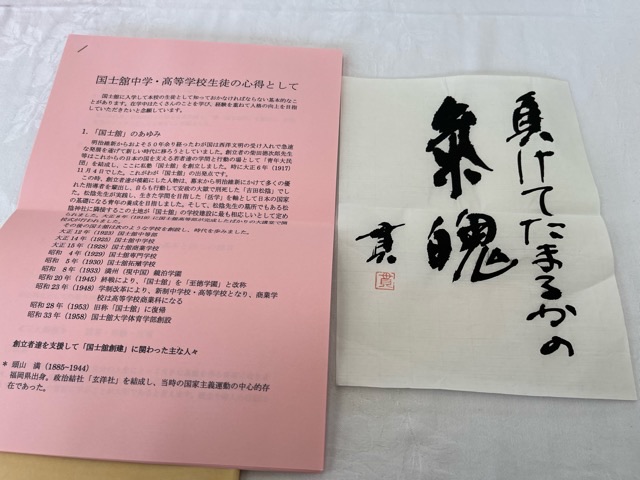 国士舘中学・高等学校生徒の心得として
国士舘に入学して本校の生徒として知っておかなければならない基本的なこ
とがあります。在学中はたくさんのことを学び、経験を重ねて人格の向上を目指
していただきたいと念願しています。
1.「国士舘」のあゆみ
明治維新からおよそ50年余り経ったわが国は西洋文明の受け入れで急速
な発展を遂げて新しい時代に移ろうとしていました。創立者の柴田徳次郎先生
等はこれからの日本の国を支える若者達の学問と行動の場として「青年大民
団」を結成し、ここに私塾「国士舘」を創立しました。時に大正6年（1917）
11月4日でした。これがわが「国士舘」の出発点です。
この時、創立者達が模範にした人物は、幕末から明治維新にかけて多くの優
れた指導者を輩出し、自らも行動して安政の大獄で刑死した「吉田松陰」でし
た。松陰先生が実践し、生きた学問を目指した「活学」を軸として日本の国家
の基礎になる青年の養成を目指しました。そして、松陰先生の墓所でもある松
陰神社に隣接するこの土地が「国士舘」の学校建設に最も相応しいとして定め
その後の国士舘は次のような学校を創設し、時代を歩みました。
大正12年（1923）国士舘中等部
大正14年（1925）国士舘中学校
大正15年（1926）国士舘商業学校
昭和 4年（1929）国士舘専門学校
昭和 5年（1930）国士舘拓殖学校
昭和 8年（1933）満州（現中国）鏡泊学園
昭和20年（1945）終戦により、「国士舘」を「至徳学園」と改称
昭和23年（1948）学制改革により、新制中学校・高等学校となり、商業学
校は高等学校商業科になる
昭和28年（1953）旧称「国士舘」に復帰
昭和33年（1958）国士舘大学体育学部創設
創立者達を支援して「国士舘創建」に関わった主な人々
* 頭山 満（1885-1944）
福岡県出身。政治結社「玄洋社」を結成し、当時の国家主義運動の中心的存
在であった。
負けてたまるかの
気魄
貫
貫